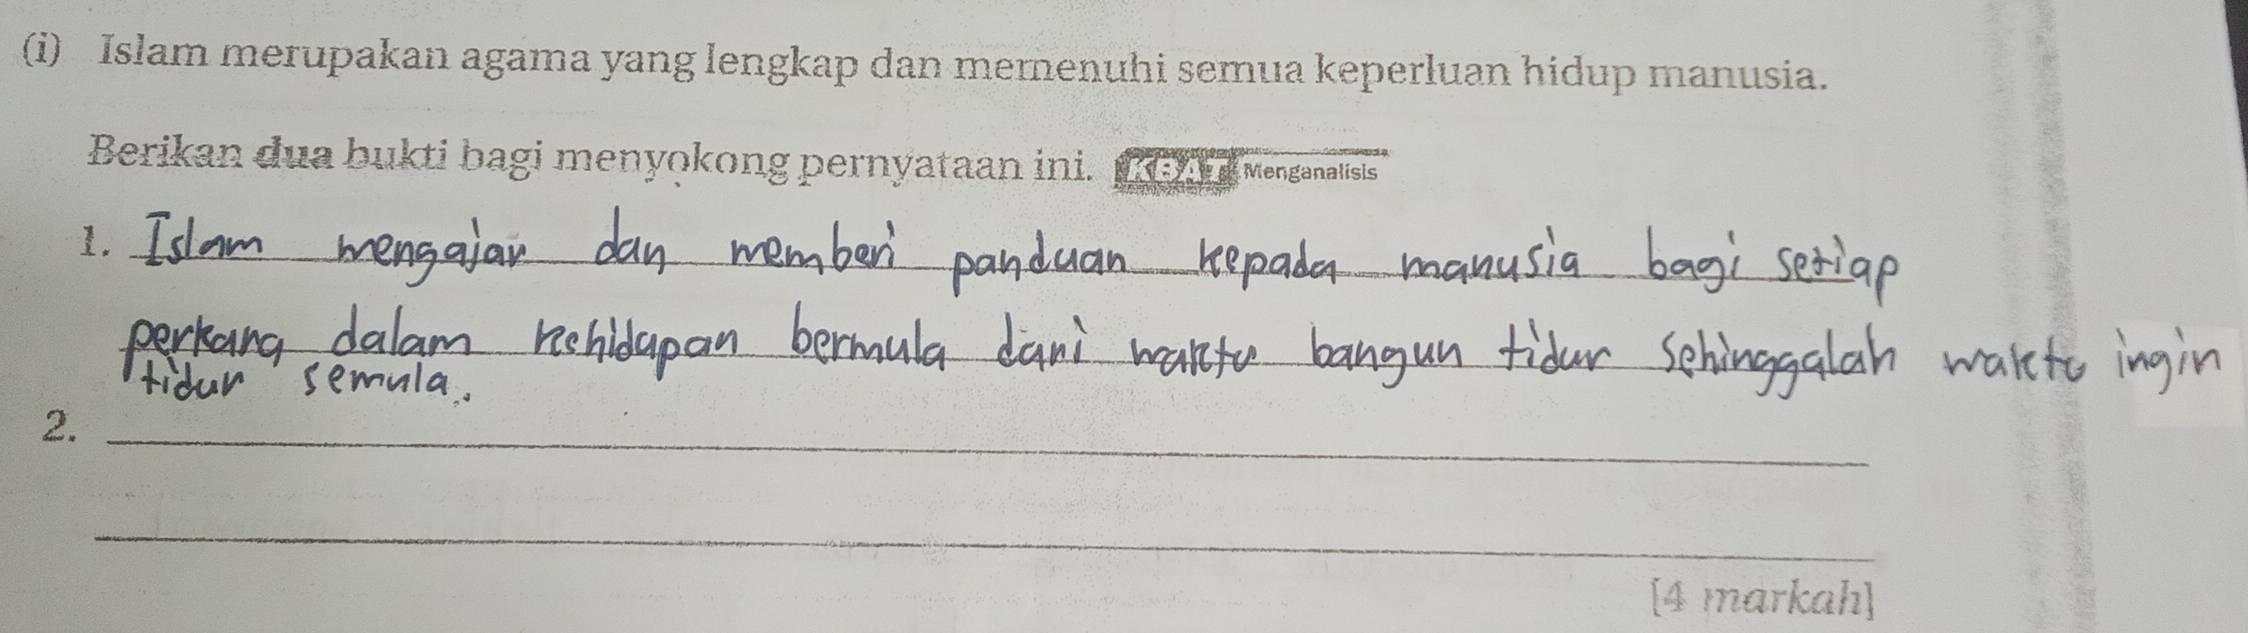 (i) Islam merupakan agama yang lengkap dan memenuhi semua keperluan hidup manusia.
Berikan dua bukti bagi menyokong pernyataan ini. KBAT Menganalisis
1. Islam mengajar dan memberi panduan kepada manusia bagi setiap
perkara dalam kehidupan bermula dari waktu bangun tidur sehinggalah waktu ingin
tidur semula.
2.
[4 markah]